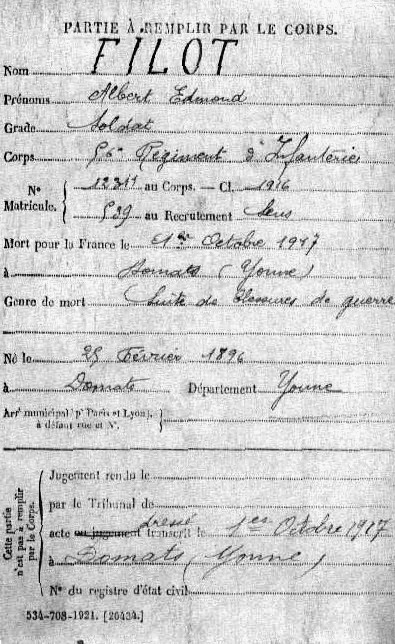 PARTIE À REMPLIR PAR LE CORPS.
Nom FILOT
Prénoms Albert Edmond
Grade Soldat
Corps Régiment d'Infanterie
N° Matricule. { au Corps. — Cl. 1916
539 au Recrutement Sens
Mort pour la France le 1er Octobre 1917
à Domats (Yonne)
Genre de mort Suite de blessures de guerre
Né le 25 Février 1896
à Domats Département Yonne
Arrt municipal (pr Paris et Lyon),
à défaut rue et N°.
Cette partie n'est pas à remplir par le Corps.
Jugement rendu le
par le Tribunal de
acte ou jugement dressé transcrit le 1er Octobre 1917
à Domats (Yonne)
N° du registre d'état civil
534-708-1921. [26434.]